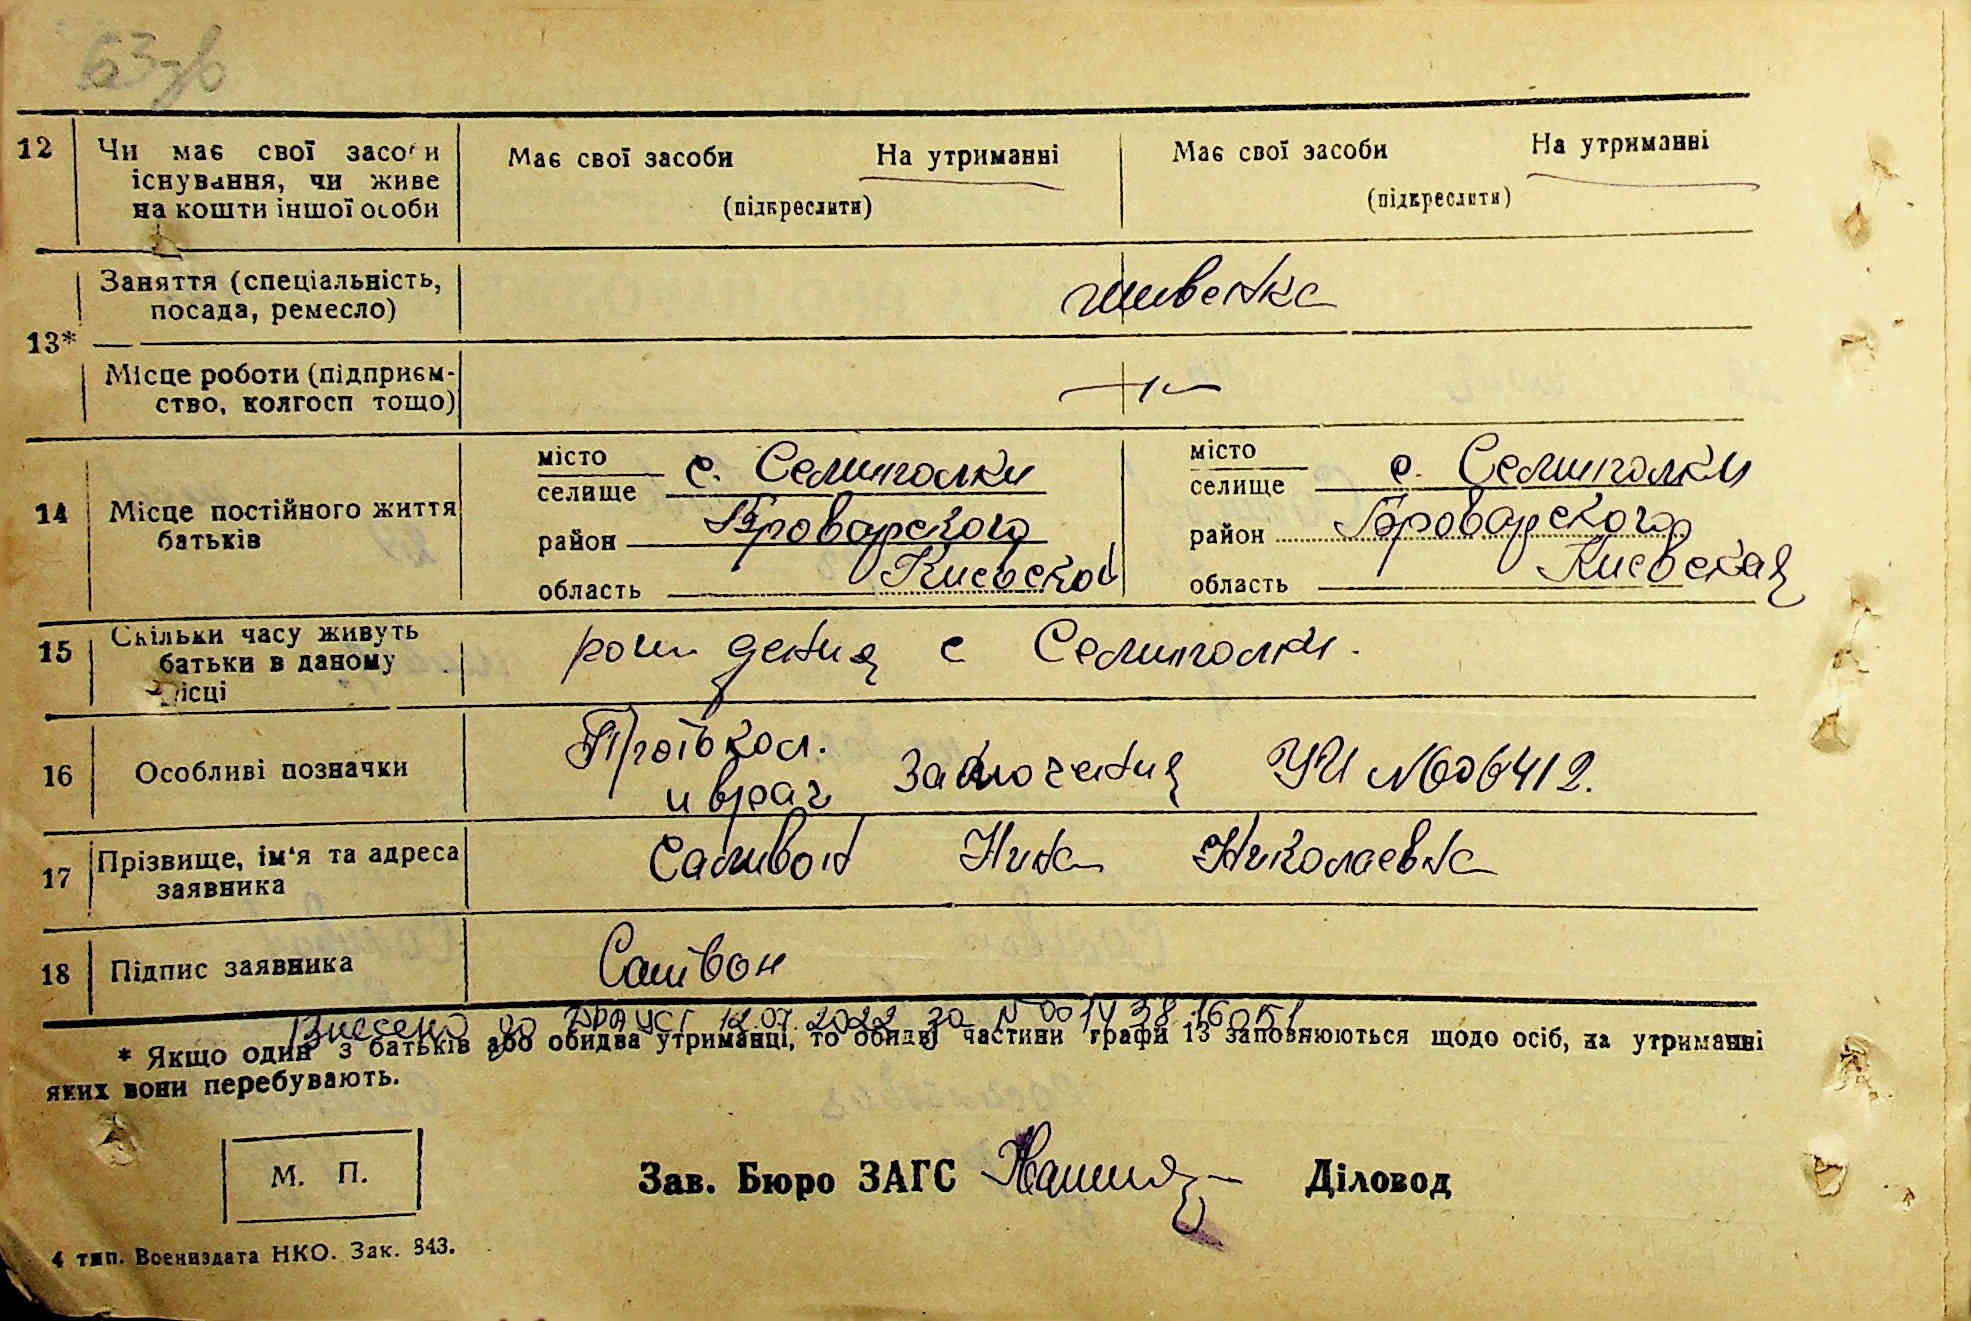 63 зв
12 Чи має свої засоби Має свої засоби На утриманні Має свої засоби На утриманні
існування, чи живе
на кошти іншої особи (підкреслити) (підкреслити)
Заняття (спеціальність, швейка
посада, ремесло)
13*
Місце роботи (підприєм-
ство, колгосп тощо)
14 Місце постійного життя батьків
місто
селище с. Семиполки
район Броварского
область Киевской
місто
селище с. Семиполки
район Броварского
область Киевская
15 Скільки часу живуть
батьки в даному
місці
рождения с Семиполки.
16 Особливі позначки
Протокол.
и врач Заключения УИ №006412.
17 Прізвище, ім'я та адреса
заявника
Саливон Нина Николаевна
18 Підпис заявника Саливон
Внесено до ДРАЦСГ 12.07.2022 за №00143816051
* Якщо один з батьків або обидва утриманці, то обидві частини графи 13 заповнюються щодо осіб, на утриманні
яких вони перебувають.
М. П. Зав. Бюро ЗАГС Діловод
4 тип. Воениздата НКО. Зак. 843.